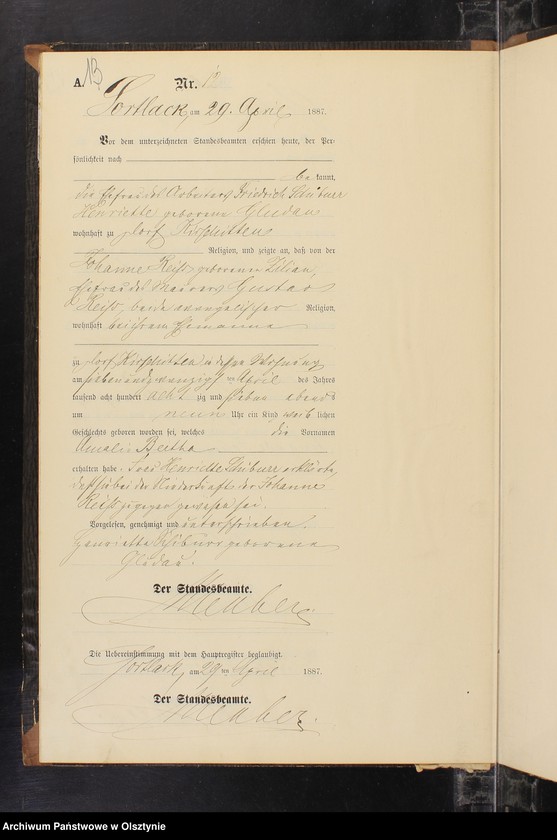 A. 13 Nr. 12
Sortlack am 29. April 1887.
Vor dem unterzeichneten Standesbeamten erschien heute, der Per-
sönlichkeit nach
be kannt,
die Ehefrau des Arbeiters Friedrich
Henriette geborene Gludau
wohnhaft zu Dorf Kirschitten
Religion, und zeigte an, daß von der
Johanne Reiß geborenen Zilian,
Ehefrau des Maurers Gustav
Reiß, beide evangelischer Religion,
wohnhaft bei ihrem Ehemanne
zu Dorf Kirschitten in dessen Wohnung
am sieben und zwanzigsten April des Jahres
tausend acht hundert acht zig und sieben abends
um neun Uhr ein Kind weib lichen
Geschlechts geboren worden sei, welches die Vornamen
Amalie Bertha
erhalten habe. Frau Henriette erklärte,
daß sie bei der Niederkunft der Johanne
Reiß zugegen gewesen sei.
Vorgelesen, genehmigt und unterschrieben.
Henriette geborene
Gludau.
Der Standesbeamte.
Die Uebereinstimmung mit dem Hauptregister beglaubigt.
Sortlack, am 29 ten April 1887.
Der Standesbeamte.
Archiwum Państwowe w Olsztynie